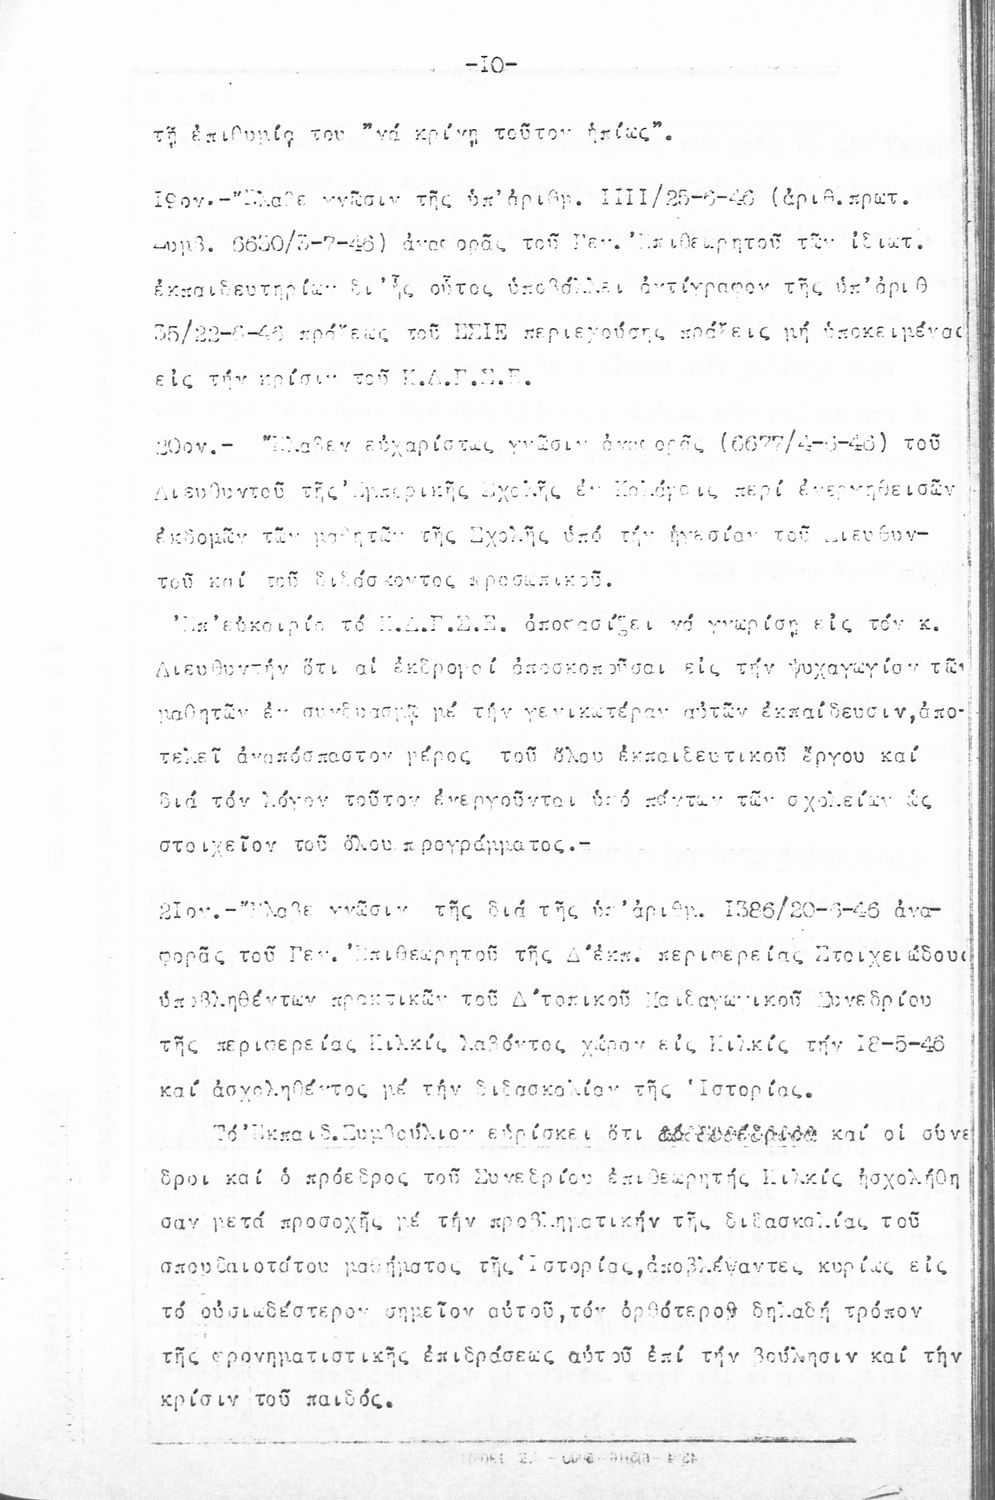 -IO-
τῇ ἐπιθυμίᾳ του "νά κρίνῃ τοῦτον ἠπίως".
I9ον.-"Ελαβε γνῶσιν τῆς ὑπ'ἀριθμ. IIII/25-6-46 (ἀριθ.πρωτ.
Συμβ. 6630/3-7-46) ἀναφορᾶς τοῦ Γεν.'Επιθεωρητοῦ τῶν ἰδιωτ.
ἐκπαιδευτηρίων δι'ἧς οὗτος ὑποβάλλει ἀντίγραφον τῆς ὑπ'ἀριθ
35/22-6-46 πράξεως τοῦ ΕΣΙΕ περιεχούσης πράξεις μή ὑποκειμένας
εἰς τήν κρίσιν τοῦ Κ.Δ.Γ.Σ.Ε.
20ον.- "Ελαβεν εὐχαρίστως γνῶσιν ἀναφορᾶς (6677/4-6-46) τοῦ
Διευθυντοῦ τῆς'Εμπορικῆς Σχολῆς ἐν περί ἐνεργηθεισῶν
ἐκδομῶν τῶν μαθητῶν τῆς Σχολῆς ὑπό τήν ἡγεσίαν τοῦ Διευθυν-
τοῦ καί τοῦ διδάσκοντος προσωπικοῦ.
'Επ'εὐκαιρίᾳ τό Κ.Δ.Γ.Σ.Ε. ἀποφασίζει νά γνωρίσῃ εἰς τόν κ.
Διευθυντήν ὅτι αἱ ἐκδρομαί ἀποσκοποῦσαι εἰς τήν ψυχαγωγίαν τῶν
μαθητῶν ἐν συνδυασμῷ μέ τήν γενικωτέραν αὐτῶν ἐκπαίδευσιν,ἀπο-
τελεῖ ἀναπόσπαστον μέρος τοῦ ὅλου ἐκπαιδευτικοῦ ἔργου καί
διά τόν λόγον τοῦτον ἐνεργοῦνται ὑπό πάντων τῶν σχολείων ὡς
στοιχεῖον τοῦ ὅλου προγράμματος.-
2Iον.-"Ελαβε γνῶσιν τῆς διά τῆς ὑπ'ἀριθμ. I386/20-6-46 ἀνα-
φορᾶς τοῦ Γεν.'Επιθεωρητοῦ τῆς Δ'ἐκπ. περιφερείας Στοιχειώδους
ὑποβληθέντων πρακτικῶν τοῦ Δ'τοπικοῦ Παιδαγωγικοῦ Συνεδρίου
τῆς περιφερείας Κιλκίς λαβόντος χώραν εἰς Κιλκίς τήν I8-5-46
καί ἀσχοληθέντος μέ τήν διδασκαλίαν τῆς 'Ιστορίας.
Τό'Εκπαιδ.Συμβούλιον εὑρίσκει ὅτι καί οἱ σύνε
δροι καί ὁ πρόεδρος τοῦ Συνεδρίου ἐπιθεωρητής Κιλκίς ἠσχολήθη
σαν μετά προσοχῆς μέ τήν προβληματικήν τῆς διδασκαλίας τοῦ
σπουδαιοτάτου μαθήματος τῆς'Ιστορίας,ἀποβλέψαντες κυρίως εἰς
τό οὐσιωδέστερον σημεῖον αὐτοῦ,τόν ὀρθότερον δηλαδή τρόπον
τῆς φρονηματιστικῆς ἐπιδράσεως αὐτοῦ ἐπί τήν βούλησιν καί τήν
κρίσιν τοῦ παιδός.